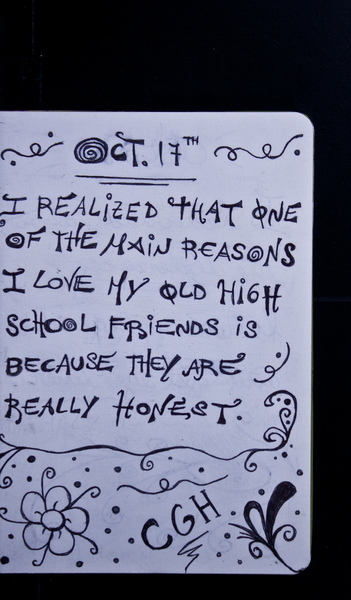 OCT. 17TH
I REALIZED THAT ONE
OF THE MAIN REASONS
I LOVE MY OLD HIGH
SCHOOL FRIENDS IS
BECAUSE THEY ARE
REALLY HONEST.
CGH